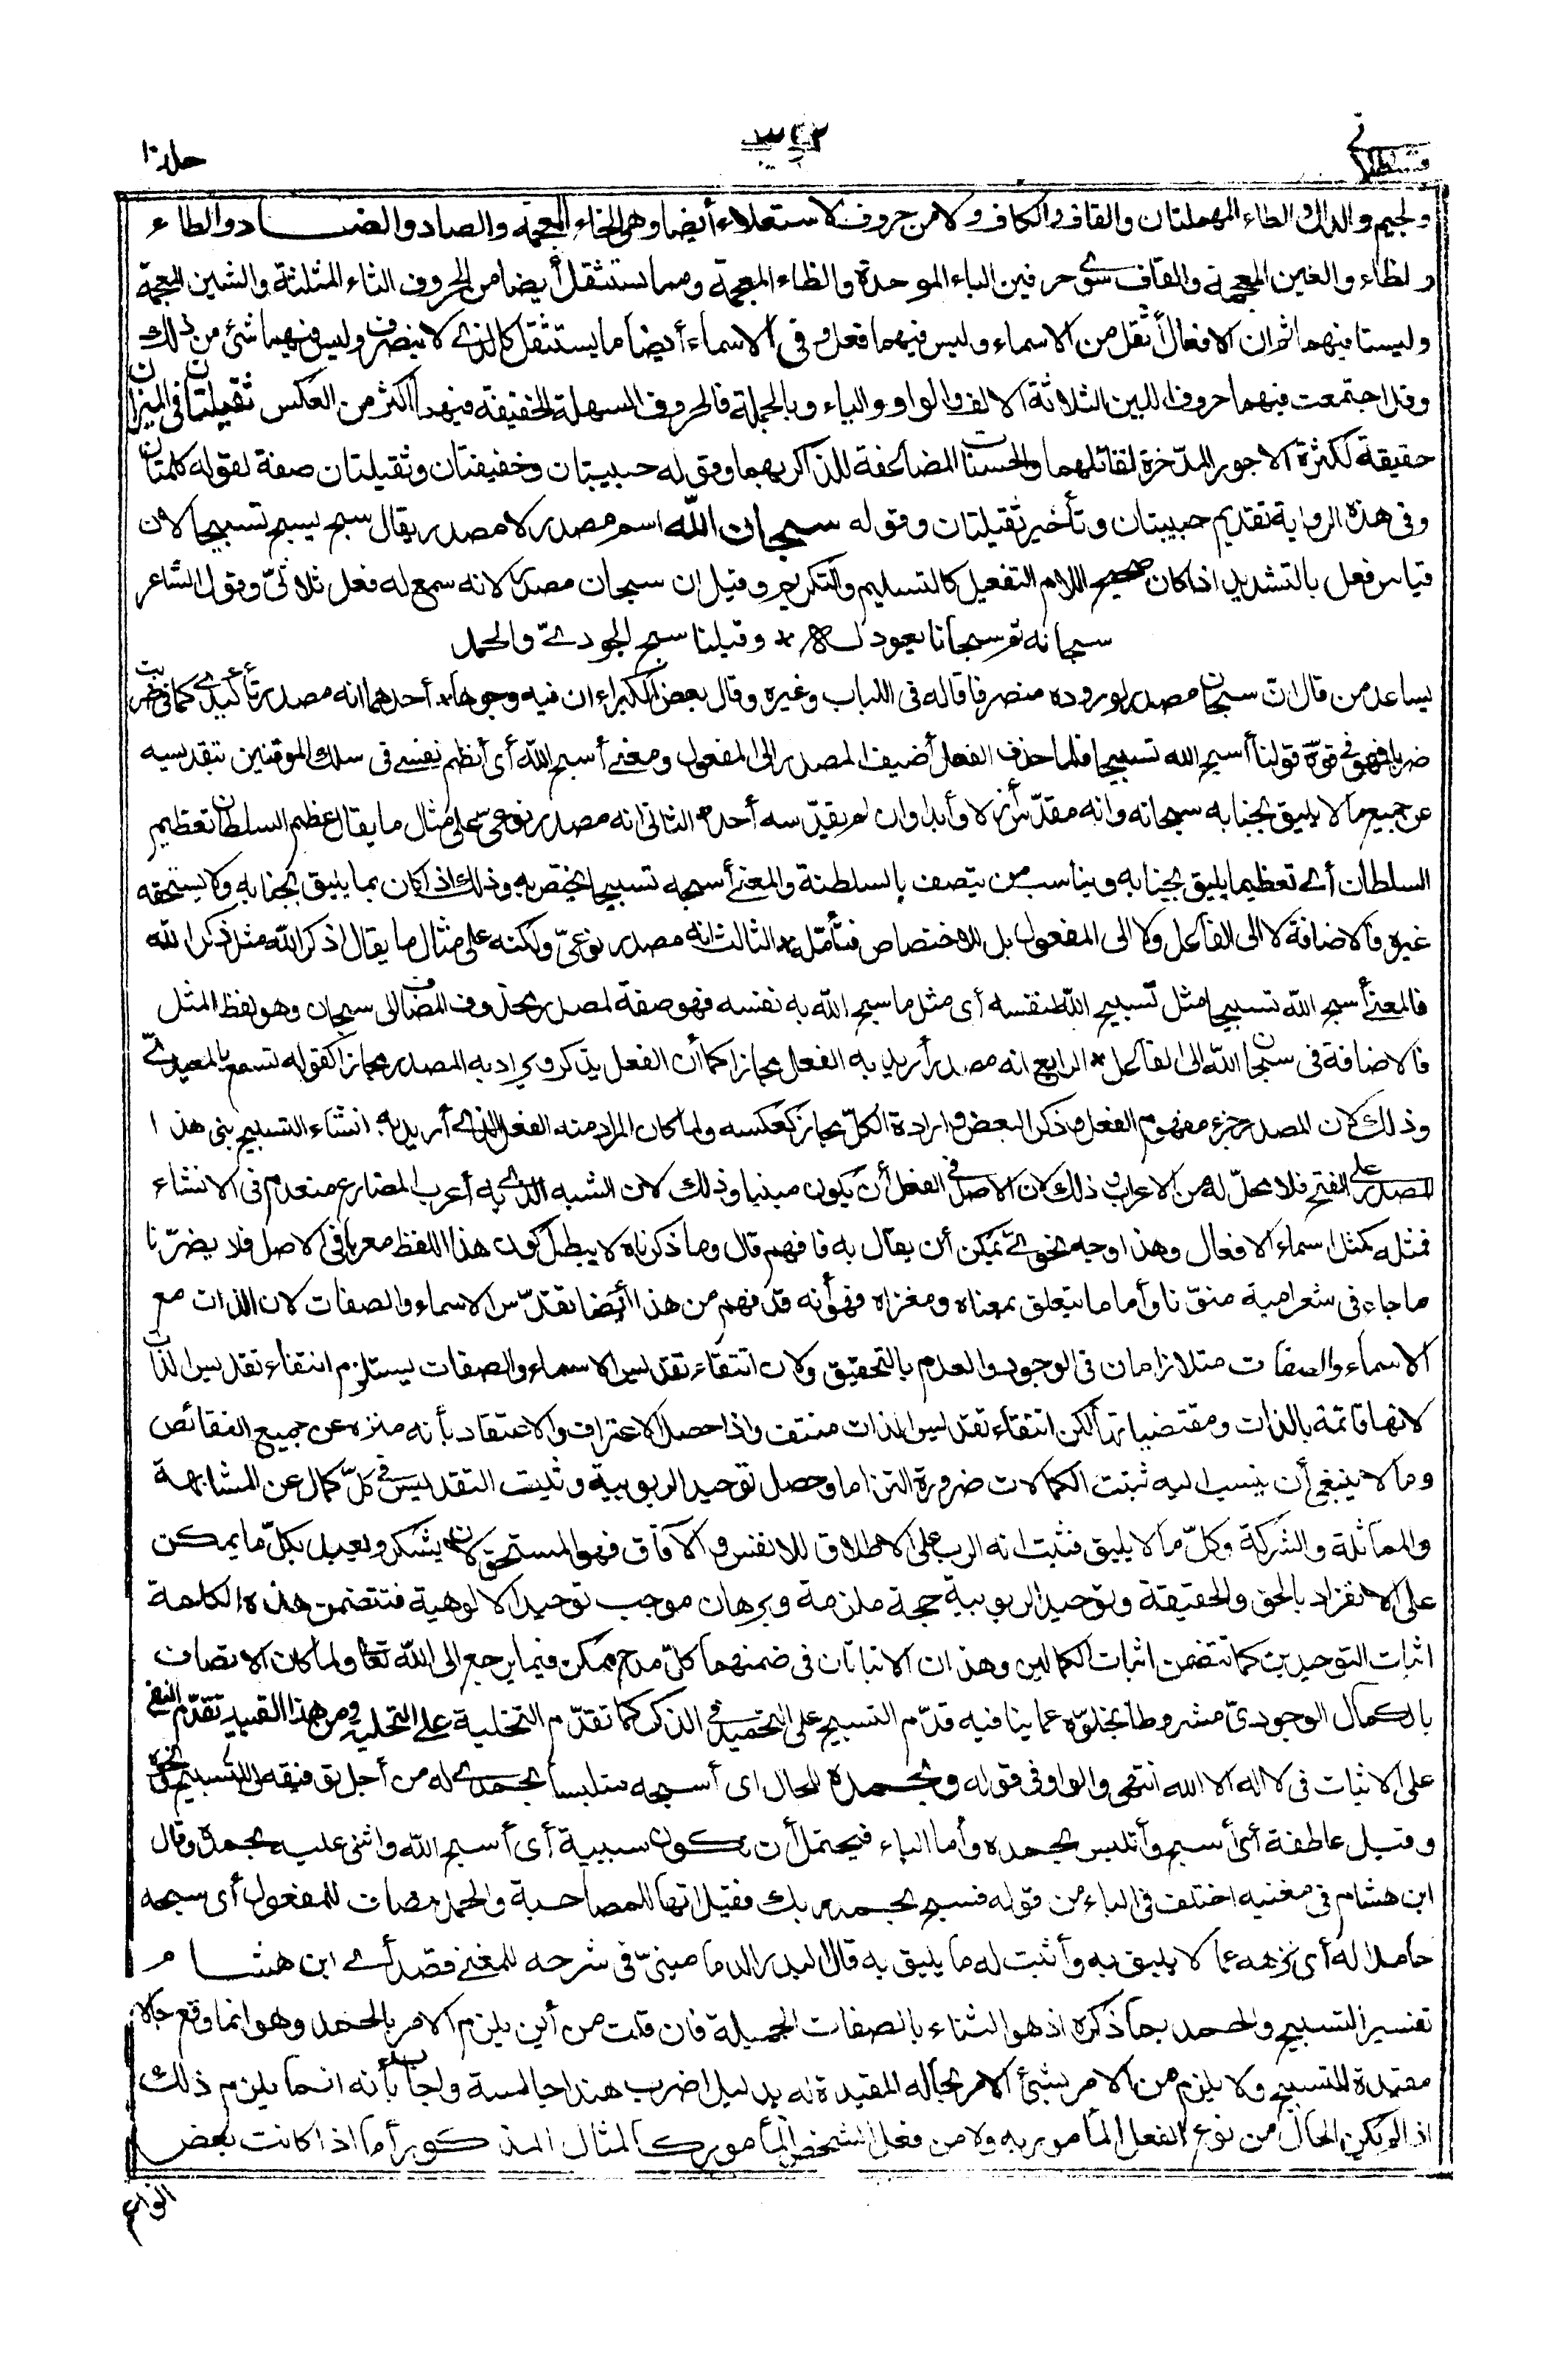 قسطلانى
٣٤٢
جلد ١٠
والجيم والدال والطاء المهملتان والقاف والكاف ولا من حروف الاستعلاء أيضا وهى الخاء المعجمة والصاد والضاد والطاء
والظاء والغين المعجمة والقاف سوى حرفين الباء الموحدة والظاء المعجمة ومما يستثقل أيضا من الحروف الثاء المثلثة والشين المعجمة
وليستا فيهما ثم ان الافعال أثقل من الاسماء وليس فيهما فعل وفى الاسماء أيضا ما يستثقل كالذى لا ينصرف وليس فيهما شئ من ذلك
وقد اجتمعت فيهما حروف اللين الثلاثة الالف والواو والياء وبالجملة فالحروف السهلة الخفيفة فيهما أكثر من العكس ثقيلتان فى الميزان
حقيقة لكثرة الاجور المدّخرة لقائلهما والحسنات المضاعفة للذاكر بهما وقوله حبيبتان وخفيفتان وثقيلتان صفة لقوله كلمتان
وفى هذه الرواية تقديم حبيبتان وتأخير ثقيلتان وقوله سبحان الله اسم مصدر لا مصدر يقال سبح يسبح تسبيحا لان
قياس فعل بالتشديد اذا كان صحيح اللام التفعيل كالتسليم والتكريم وقيل ان سبحان مصدر لانه سمع له فعل ثلاثىّ وقول الشاعر
سبحانه ثم سبحانا يعود له * وقبلنا سبح الجودىّ والجمد
يساعد من قال ان سبحان مصدر لوروده منصرفا قاله فى اللباب وغيره وقال بعض الكبراء ان فيه وجوها * أحدهما انه مصدر تأكيدى كما فى ضربت
ضربا فهو فى قوّة قولنا أسبح الله تسبيحا فلما حذف الفعل أضيف المصدر الى المفعول ومعنى أسبح الله أى أنظم نفسى فى سلك الموقنين بتقديسه
عن جميع ما لا يليق بجنابه سبحانه وانه مقدّس أزلا وأبدا وان لم يقدّسه أحد * الثانى انه مصدر نوعى على مثال ما يقال عظم السلطان تعظيم
السلطان أى تعظيما يليق بجنابه ويناسب من يتصف بالسلطنة والمعنى أسبحه تسبيحا يختص به وذلك اذا كان بما يليق بجنابه ولا يستحقه
غيره فالاضافة لا الى الفاعل ولا الى المفعول بل للاختصاص فتأمّل * الثالث انه مصدر نوعىّ ولكنه على مثال ما يقال اذكر الله مثل ذكر الله
فالمعنى أسبح الله تسبيحا مثل تسبيح الله لنفسه أى مثل ما سبح الله به نفسه فهو صفة لمصدر محذوف المضاف الى سبحان وهو لفظ المثل
فالاضافة فى سبحان الله الى الفاعل * الرابع انه مصدر أريد به الفعل مجازا كما أن الفعل يذكر ويراد به المصدر مجازا كقوله تسمع بالمعيدىّ
وذلك لان المصدر جزء مفهوم الفعل وذكر البعض وارادة الكلّ مجاز كعكسه ولما كان المراد منه الفعل الذى أريد به انشاء التسبيح بنى هذا
المصدر على الفتح فلا محلّ له من الاعراب وذلك لان الاصل فى الفعل أن يكون مبنيا وذلك لان الشبه الذى به أعرب المضارع منعدم فى الانشاء
فمثله كمثل اسماء الافعال وهذا وجه نحوىّ يمكن أن يقال به فافهم قال وما ذكرناه لا يبطل كون هذا اللفظ معربا فى الاصل فلا يضرّنا
ما جاء فى شعر امية منوّنا وأما ما يتعلق بمعناه ومغزاه فهو أنه قد فهم من هذا أيضا تقدّس الاسماء والصفات لان الذات مع
الاسماء والصفات متلازمان فى الوجود والعدم بالتحقيق ولان انتفاء تقديس الاسماء والصفات يستلزم انتفاء تقديس الذات
لانها قائمة بالذات ومقتضياتها لكن انتفاء تقديس الذات منتف واذا حصل الاعتراف والاعتقاد بأنه منزه عن جميع النقائص
وما لا ينبغى أن ينسب اليه ثبتت الكمالات ضرورة التزاما وحصل توحيد الربوبية وثبت التقديس فى كلّ كمال عن المشابهة
والمماثلة والشركة وكلّ ما لا يليق فثبت انه الرب على الاطلاق للانفس والآفاق فهو المستحق لان يشكر ويعبد بكلّ ما يمكن
على الانفراد بالحق والحقيقة وتوحيد الربوبية حجة ملزمة وبرهان موجب توحيد الالوهية فتتضمن هذه الكلمة
اثبات التوحيدين كما تتضمن اثبات الكمالين وهذان الاثباتان فى ضمنهما كلّ مدح ممكن فيما يرجع الى الله تعالى ولما كان الاتصاف
بالكمال الوجودىّ مشروطا بخلوّه عما ينافيه قدّم التسبيح على التحميد فى الذكر كما تقدّم التخلية على التحلية ومن هذا القبيل تقدّم النفى
على الاثبات فى لا اله الا الله انتهى والواو فى قوله وبحمده للحال اى أسبحه متلبسا بحمدى له من أجل توفيقه لى للتسبيح ونحوه
وقيل عاطفة أى أسبح وأتلبس بحمده وأما الباء فيحتمل أن تكون سببية أى أسبح الله واثنى عليه بحمده وقال
ابن هشام فى مغنيه اختلف فى الباء من قوله فسبح بحمد ربك فقيل انها للمصاحبة والحمد مضاف للمفعول أى سبحه
حامدا له أى نزهه عما لا يليق به وأثبت له ما يليق به قال البدر الدمامينىّ فى شرحه للمغنى قصد أى ابن هشام
تفسير التسبيح والحمد بما ذكره اذ هو الثناء بالصفات الجميلة فان قلت من أين يلزم الامر بالحمد وهو انما وقع حالا
مقيدة للتسبيح ولا يلزم من الامر بشئ الامر بحاله المقيدة له بدليل اضرب هندا جالسة وأجاب بأنه انما يلزم ذلك
اذا لم يكن الحال من نوع الفعل المأمور به ولا من فعل الشخص المأمور كالمثال المذكور أما اذا كانت بعض
انواع